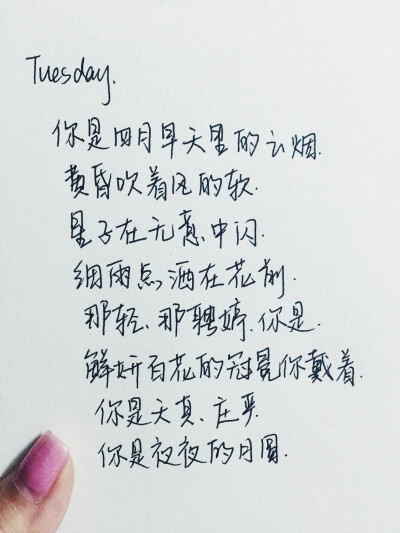 Tuesday.
你是四月早天里的云烟.
黄昏吹着风的软.
星子在无意中闪.
细雨点洒在花前.
那轻、那聘婷.你是.
鲜妍百花的冠冕你戴着.
你是天真、庄严
你是夜夜的月圆.